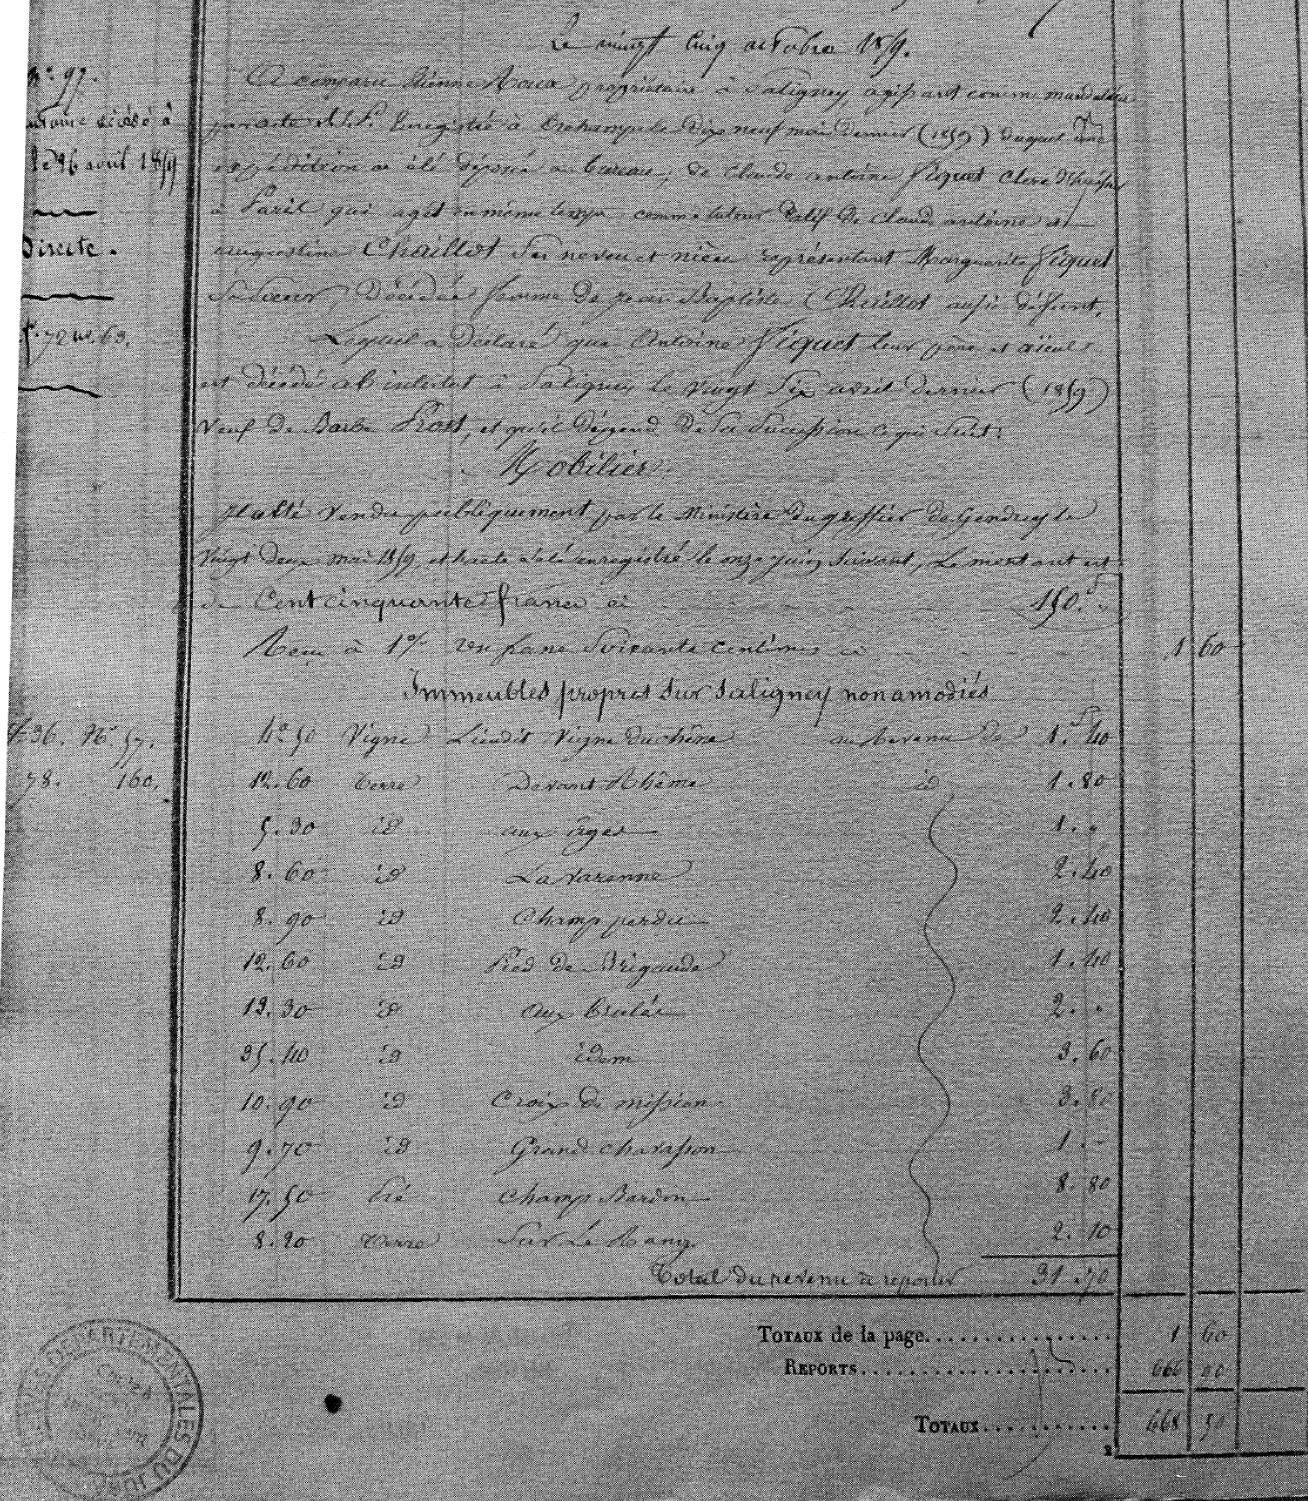 Le vingt Cinq octobre 1859.
N° 97.
A comparu Etienne Roux propriétaire à Saligney, agissant comme mandataire
antoine décédé à
par acte S.S.P. Enregistré à Orchamps le dix neuf mai dernier (1859) duquel une
le 26 avril 1859
expédition a été déposée au bureau, de Claude antoine Piquet Clerc d'huissier
à Paris qui agit en même temps comme tuteur datif de Claude antoine et
Directe.
augustine Chaillot ses neveu et nièce représentant Marguerite Piquet
Sa Sœur Décédée femme de jean Baptiste Chaillot aussi défunt,
f. 72 n° 63.
Lequel a Déclaré que Antoine Piquet leur père et aïeul
est décédé ab intestat à Saligney le vingt Six avril dernier (1859)
Veuf de Barbe Prost, et qu'il dépend de sa Succession ce qui suit:
Mobilier
Il a été vendu publiquement par le Ministère du greffier de Gendrey le
Vingt deux mai 1859 et l'acte a été enregistré le onze juin suivant, Le montant est
de Cent cinquante francs ci 150.f.
Reçu à 1% un franc Soixante centimes ci 1 60
Immeubles propres sur Saligney non amodiés
f. 36. N° 57. 4a 50 Vigne Lieudit Vigne du chêne au revenu de 1.f 40
78. 160. 12.60 Terre Devant Rhême id 1.80
5.30 id aux âges 1. "
8.60 id La Varenne 2.40
8.90 id Champ perdu 2.40
12.60 id Pied de Brigaude 1.40
12.30 id aux brulés 2. "
35.40 id idem 3.60
10.90 id Croix de mission 3.80
9.70 id Grand chavasson 1. -
17.50 Pré Champ Bardon 8.80
8.20 Terre Sur Le Rang 2.10
Total du revenu à reporter 31.70
TOTAUX de la page 1 60
REPORTS 666 90
TOTAUX 668 50
DEPARTEMENTALES DU JURA